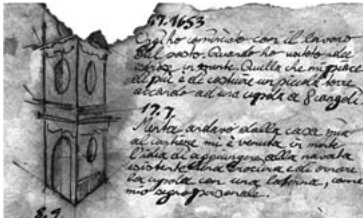 6.7.1653
Oggi ho cominciato con il lavoro
sul posto. Quando ho visitato
in mente. Quella che mi piace
di più è di costruire un piccola torre
accanto ad una cupola a 8 angoli
17.7
Mentre andavo dalla casa mia
al cantiere mi è venuta in mente
l'idea di aggiungere alla navata
esistente una crociera e di ornare
la cupola con una laterna, come
mio segno personale.
8.7